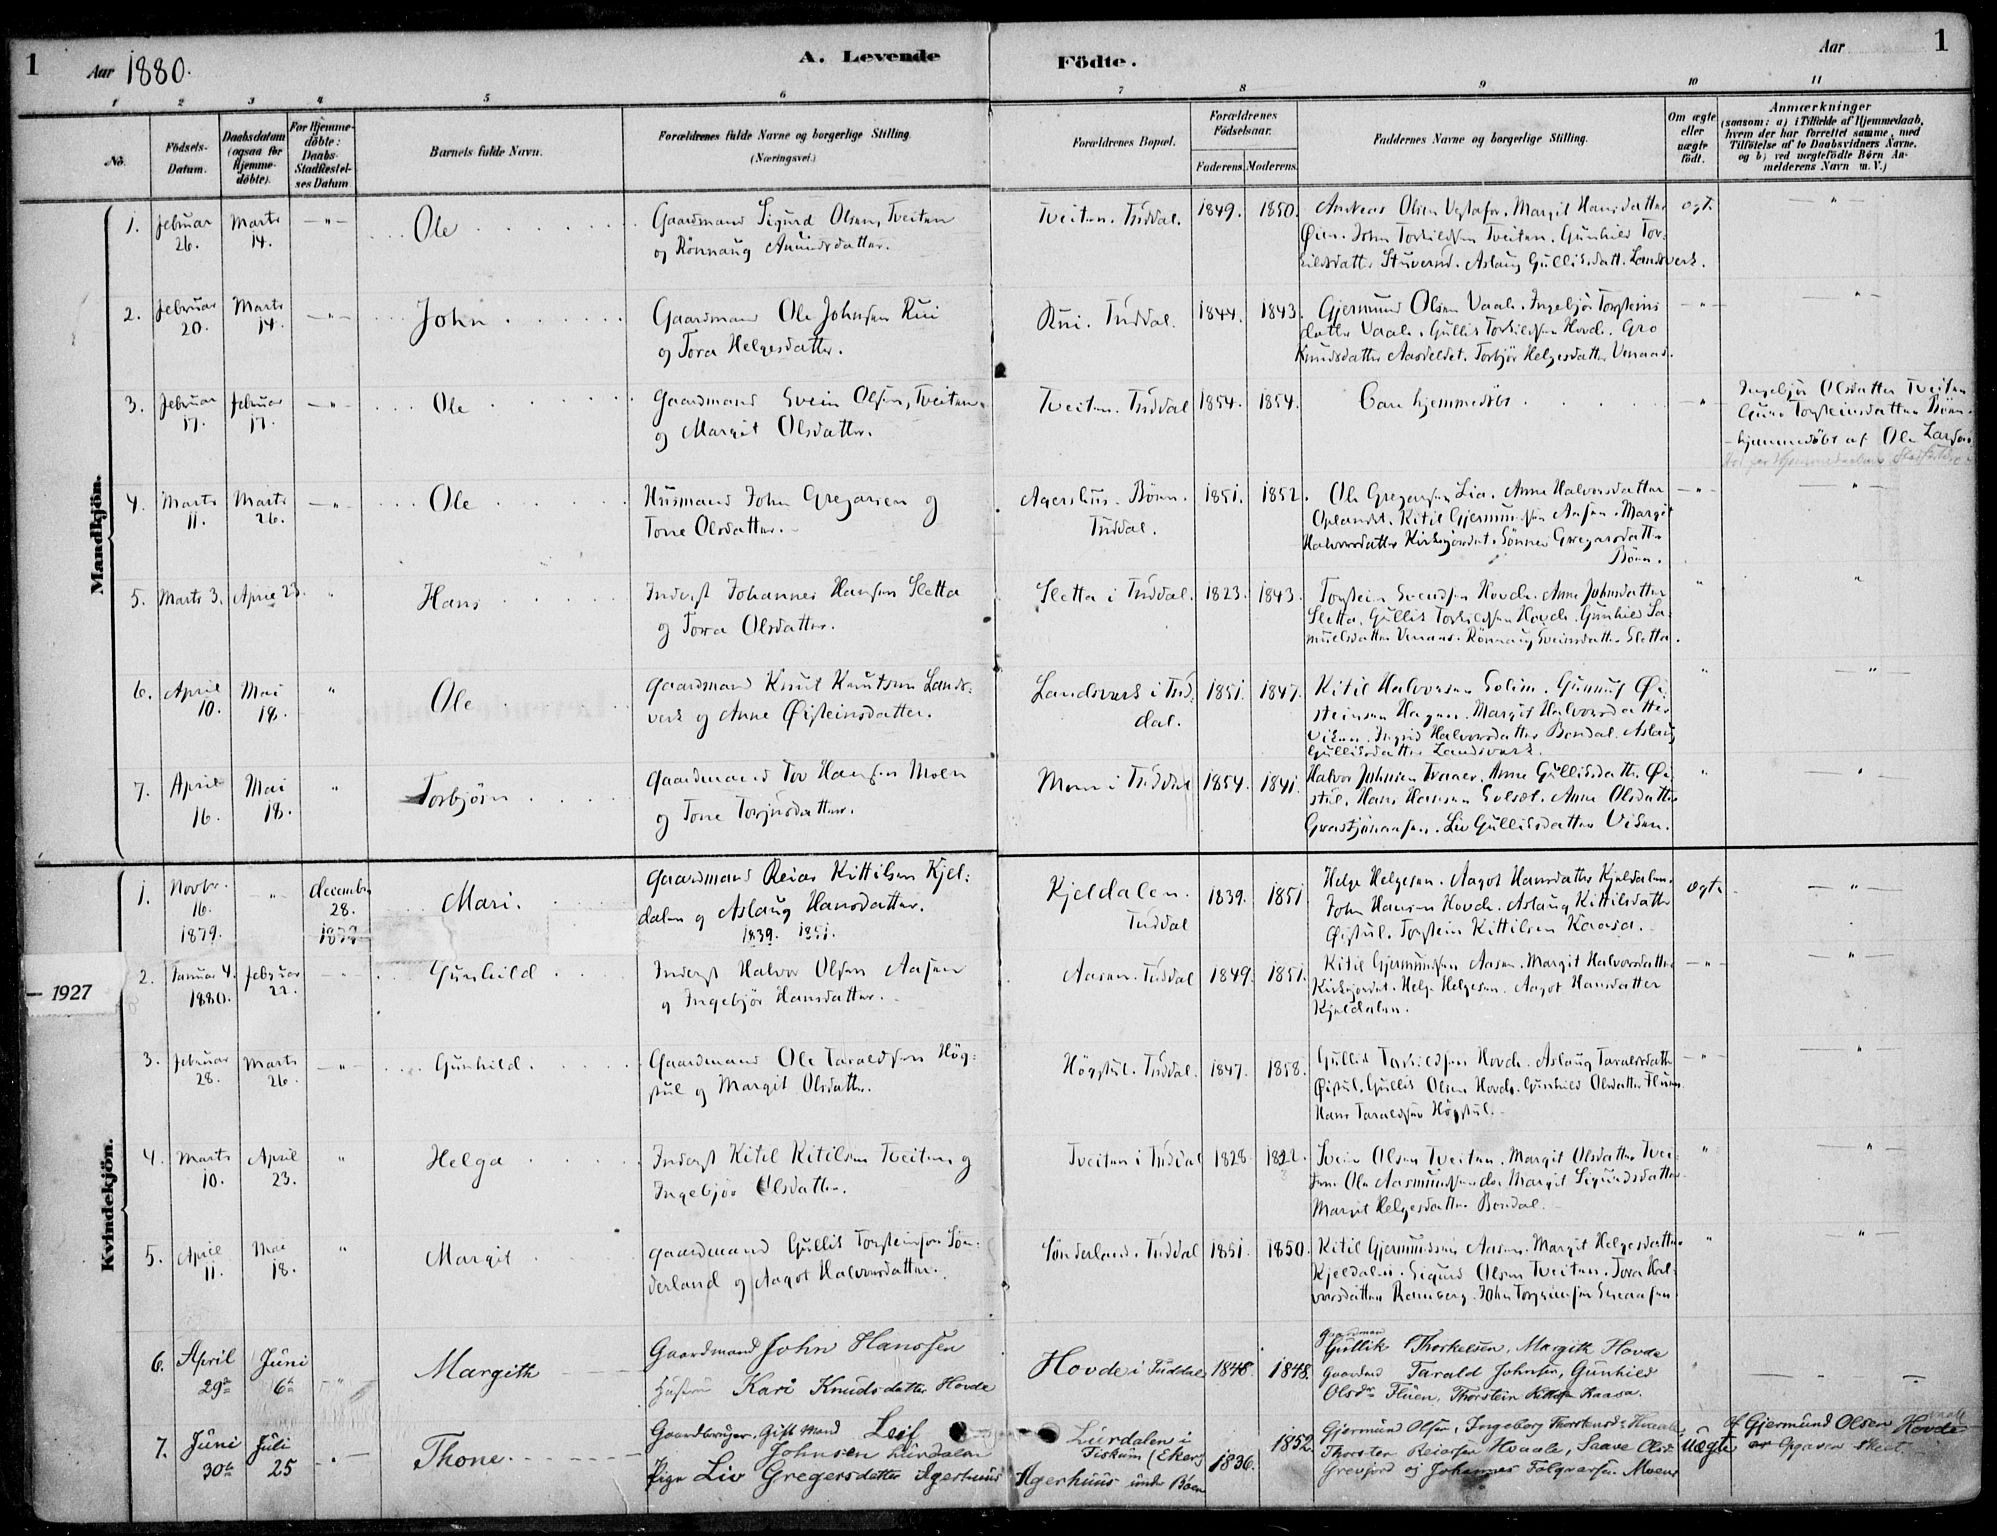 1
Aar 1880.
A. Levende
Födte.
Aar
1
1 2 3 4 5 6 7 8 9 10 11
No.
Födsels-
Datum.
Daabsdatum
(ogsaa for
Hjemme-
döbte).
For Hjemme-
döbte:
Daabs-
Stadfæstel-
ses Datum
Barnets fulde Navn.
Forældrenes fulde Navne og borgerlige Stilling.
(Næringsvei.)
Forældrenes Bopæl.
Forældrenes
Födselsaar.
Faderens. Moderens.
Faddernes Navne og borgerlige Stilling.
Om ægte
eller
uægte
födt.
Anmærkninger
(saasom: a) i Tilfælde af Hjemmedaab,
hvem der har forrettet samme, med
Tilföielse af to Daabsvidners Navne,
og b) ved uægtefödte Børn An-
melderens Navn m. V.)
Mandkjön.
1. Februar 26. Marts 14. Ole
Gaardmand Sigurd Olsen, Tveiten
og Rönnaug Amundsdatter.
Tveiten. Tuddal. 1849. 1850.
Andreas Olsen . Margit Hansdatter
Öien. John Torkildsen Tveiten. Gunhild Tor-
kildsdatter Stuverud. Aslaug Gulliksdatt. Landsverk.
ægt.
2. Februar 20. Marts 14. John
Gaardmand Ole Johnsen Rui
og Tora Helgesdatter.
Rui. Tuddal. 1844. 1843.
Gjermund Olsen Vaale. Ingebjör Torsteins
datter Vaale. Gullik Torkildsen Hovde. Gro
Knudsdatter . Torbjör Helgesdatter Venaas.
3. Februar 17. Februar 17. Ole
Gaardmand Svein Olsen, Tveiten
og Margit Olsdatter.
Tveiten. Tuddal 1854. 1854.
Bare hjemmedöbt
Ingebjör Olsdatter Tveiten
Torsteinsdatter Bönn.
hjemmedöbt af Ole Larsen
4. Marts 11. Marts 26. Ole
Husmand John Gregarsen og
Tone Olsdatter.
Agershus. Bönn.
Tuddal.
1851. 1852.
Ole Gregarsen Lia. Anne Halvorsdatter
Oplandet. Kitil Gjermundsen Aasen. Margit
Halvorsdatter Kirkejordet. Sönnev Gregarsdatter
Bönn.
5. Marts 3. April 23. Hans
Inderst Johannes Hansen Sletta
og Tora Olsdatter.
Sletta i Tuddal. 1823. 1843.
Torstein Svendsen Hovde. Anne Johnsdatter
Sletta. Gullik Torkildsen Hovde. Gunhild Sa-
muelsdatter Venaas. Rönnaug Sveinsdatter Sletta.
6. April 10. Mai 18. Ole
Gaardmand Knut Knutsen Lands-
verk og Anne Öisteinsdatter.
Landsverk i Tud-
dal.
1851. 1847.
Kitil Halvorsen Solim. Gunnuf Öi-
steinsen Hagen. Margit Halvorsdatter
Viken. Ingrid Halvorsdatter Bondal. Aslaug
Gulliksdatter Landsverk.
7. April 16. Mai 18. Torbjörn
Gaardmand Tov Hansen Moen
og Tone Torjusdatter.
Moen i Tuddal 1854. 1841.
Halvor Johnsen Traaer. Anne Gulliksdatter Öi-
stul. Hans Hansen . Anne Olsdatter
. Liv Gulliksdatter Viken.
Kvindekjön.
1. Novbr. 16. 1879. December 28. 1879 Mari.
Gaardmand Reiar Kittilsen Kjel-
dalen og Aslaug Hansdatter.
1839. 1851.
Kjeldalen.
Tuddal
1839. 1851
Helge Helgesen. Aagot Hansdatter Kjeldalen.
John Hansen Hovde. Aslaug Kittilsdatter
Öistul. Torstein Kittilsen Kaasa.
ægt.
— 1927
2. Januar 4. 1880. Februar 22. Gunhild
Inderst Halvor Olsen Aasen
og Ingebjör Hansdatter.
Aasen. Tuddal 1849. 1851.
Kitil Gjermundsen Aasen. Margit Halvorsdatter
Kirkejordet. Helge Helgesen. Aagot Hansdatter
Kjeldalen.
3. Februar 28. Marts 26. Gunhild.
Gaardmand Ole Taraldsen Hög-
stul og Margit Olsdatter.
Högstul. Tuddal. 1847. 1858.
Gullik Torkildsen Hovde. Aslaug Taraldsdatter
Öistul. Gullik Olsen Hovde. Gunhild Olsdatter Fluen.
Hans Taraldsen Högstul.
4. Marts 10. April 23. Helga
Inderst Kitil Kitilsen Tveiten og
Ingebjör Olsdatter.
Tveiten i Tuddal 1828.
Svein Olsen Tveiten. Margit Olsdatter Tvei-
ten. Ole Aasmundsen. Margit Sigurdsdatter
Margit Helgesdatter Bondal.
5. April 11. Mai 18. Margit
Gaardmand Gullik Torsteinsen Sön-
derland og Aagot Halvorsdatter.
Sönderland. Tuddal 1851. 1850.
Kitil Gjermundsen Aasen. Margit Helgesdatter
Kjeldalen. Sigurd Olsen Tveiten. Tora Hal-
vorsdatter Ramberg. John Torgrimsen
6. April 29de Juni 6te Margith
Gaardmand John Hanssen
Hustru Kari Knudsdatter Hovde
Hovde i Tuddal 1848 1848.
Gaardman
Gullik Thorkelsen, Margith Hovde
Gaardmd Tarald Johnsen, Gunhild
Olsdr Fluen, Thorstein Kittilsen Kaasa.
7. Juni 30te Juli 25 Thone.
Gaardbruger, Gift Mand Leif
Johnsen Lurdalen
Pige Liv Gregersdatter Agerhuus
Lurdalen i
Fiskum (Eker)
Agerhuus under Böen
1836. 1852
Gjermund Olsen, Ingeborg Thorstensdr Hvaale,
Thorsten Reiersen Hvaale, Saave Olsdr
Grevjord og Johannes Folqvarsen Moen
Uægte
af Gjermund Olsen Hovde
er Opgaven skeet.